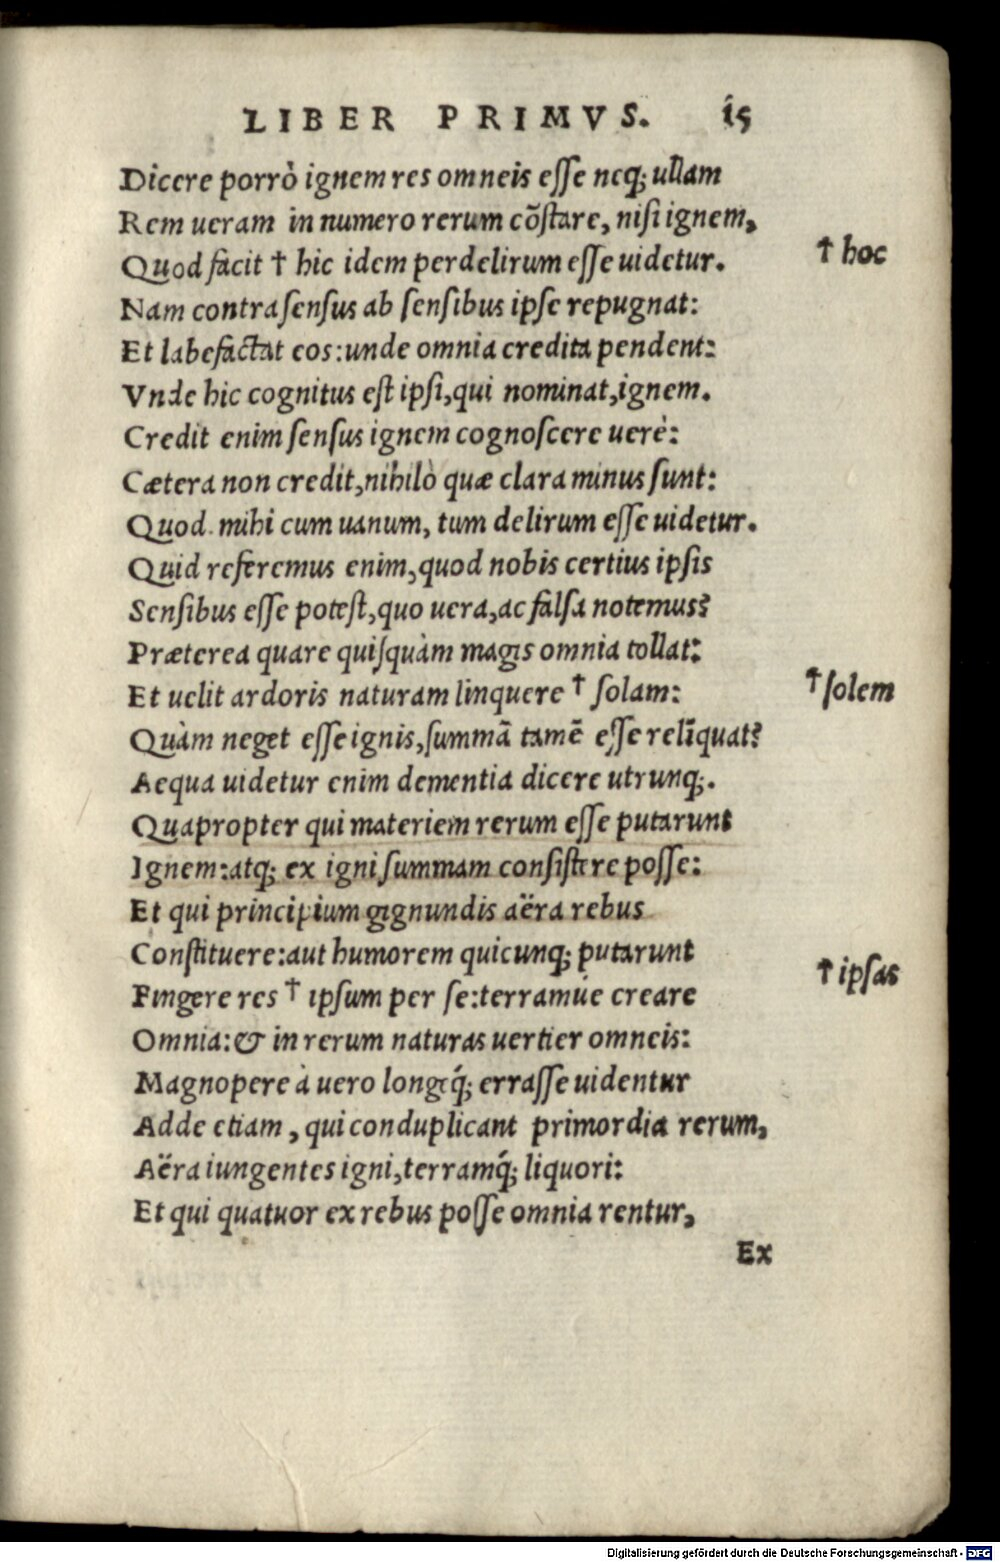 LIBER PRIMVS. 15
Dicere porrò ignem res omneis eſſe neq; ullam
Rem ueram in numero rerum cōſtare, niſi ignem,
Quod facit † hic idem perdelirum eſſe uidetur.
† hoc
Nam contra ſenſus ab ſenſibus ipſe repugnat:
Et labefactat eos: unde omnia credita pendent:
Vnde hic cognitus eſt ipſi, qui nominat, ignem.
Credit enim ſenſus ignem cognoſcere uerè:
Cætera non credit, nihilò quæ clara minus ſunt:
Quod mihi cum uanum, tum delirum eſſe uidetur.
Quid referemus enim, quod nobis certius ipſis
Senſibus eſſe poteſt, quo uera, ac falſa notemus?
Præterea quare quiſquàm magis omnia tollat:
Et uelit ardoris naturam linquere † ſolam:
† ſolem
Quàm neget eſſe ignis, ſummā tamē eſſe relīquat?
Aequa uidetur enim dementia dicere utrunq;.
Quapropter qui materiem rerum eſſe putarunt
Ignem: atq; ex igni ſummam conſiſtere poſſe:
Et qui principium gignundis aëra rebus
Conſtituere: aut humorem quicunq; putarunt
Fingere res † ipſum per ſe: terramúe creare
† ipſas
Omnia: & in rerum naturas uertier omneis:
Magnopere à uero longeq́; erraſſe uidentur
Adde etiam, qui conduplicant primordia rerum,
Aëra iungentes igni, terramq́; liquori:
Et qui quatuor ex rebus poſſe omnia rentur,
Ex
Digitalisierung gefördert durch die Deutsche Forschungsgemeinschaft - DFG